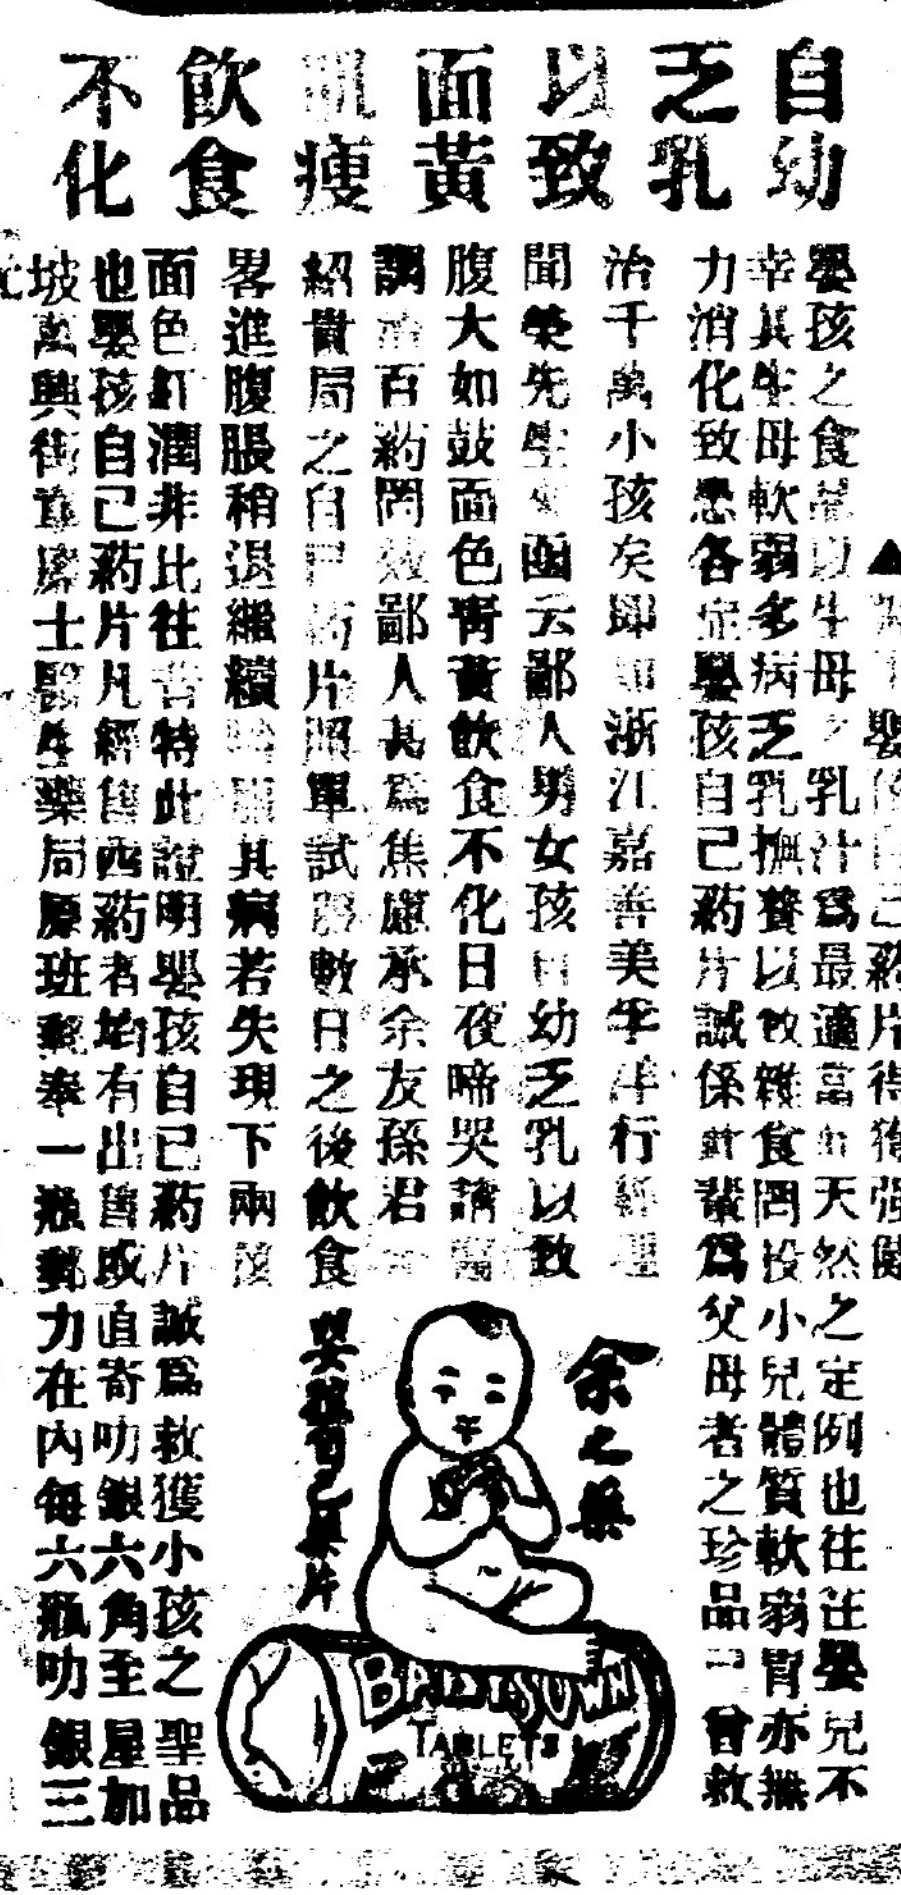 自幼
乏乳
以致
面黃
肌瘦
飲食
不化
嬰孩自己葯片得獲强健
嬰孩之食品以生母之乳汁爲最適當天然之定例也往往嬰兒不
幸其生母軟弱多病乏乳撫養以致雜食罔投小兒體質軟弱胃亦無
力消化致患各症嬰孩自己葯片誠係此輩爲父母者之珍品曾救
治千萬小孩矣即如浙江嘉善美孚洋行經理
聞榮先生來函云鄙人男女孩自幼乏乳以致
腹大如鼓面色靑黃飲食不化日夜啼哭請醫
調治百葯罔效鄙人甚爲焦慮承余友孫君介
紹貴局之自己葯片照單試服數日之後飲食
畧進腹脹稍退繼續其病若失現下兩孩
面色紅潤非比往昔特此證明嬰孩自己葯片誠爲救獲小孩之聖品
也嬰孩自己葯片凡經售西葯者均有出售或直寄叻銀六角至星加
坡萬興街韋廉士醫生藥局原班郵奉一瓶郵力在內每六瓶叻銀三
元
余之藥
嬰孩自己藥片
BABY'S OWN
TABLETS